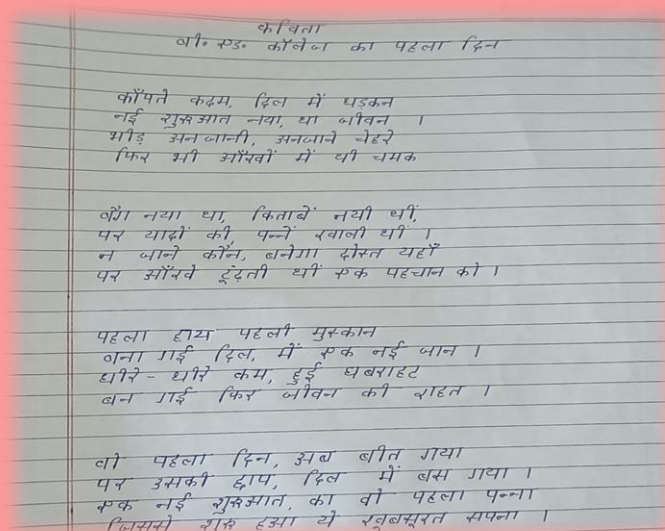 कविता
बी॰ एड॰ कॉलेज का पहला दिन
काँपते कदम, दिल में धड़कन
नई शुरुआत नया, था जीवन ।
भीड़ अनजानी, अनजाने चेहरे
फिर भी आँखों में थी चमक
बैग नया था, किताबें नयी थीं,
पर यादों की, पन्नें खाली थीं ।
न जाने कौन, बनेगा दोस्त यहाँ
पर आँखे ढूंढ़ती थीं एक पहचान को ।
पहला हाय पहली मुस्कान
बना गई दिल, में एक नई जान ।
धीरे - धीरे कम, हुई घबराहट
बन गई फिर जीवन की राहत ।
वो पहला दिन, अब बीत गया
पर उसकी छाप, दिल में बस गया ।
एक नई शुरुआत, का वो पहला पन्ना
जिससे शुरु हुआ ये खूबसूरत सपना ।